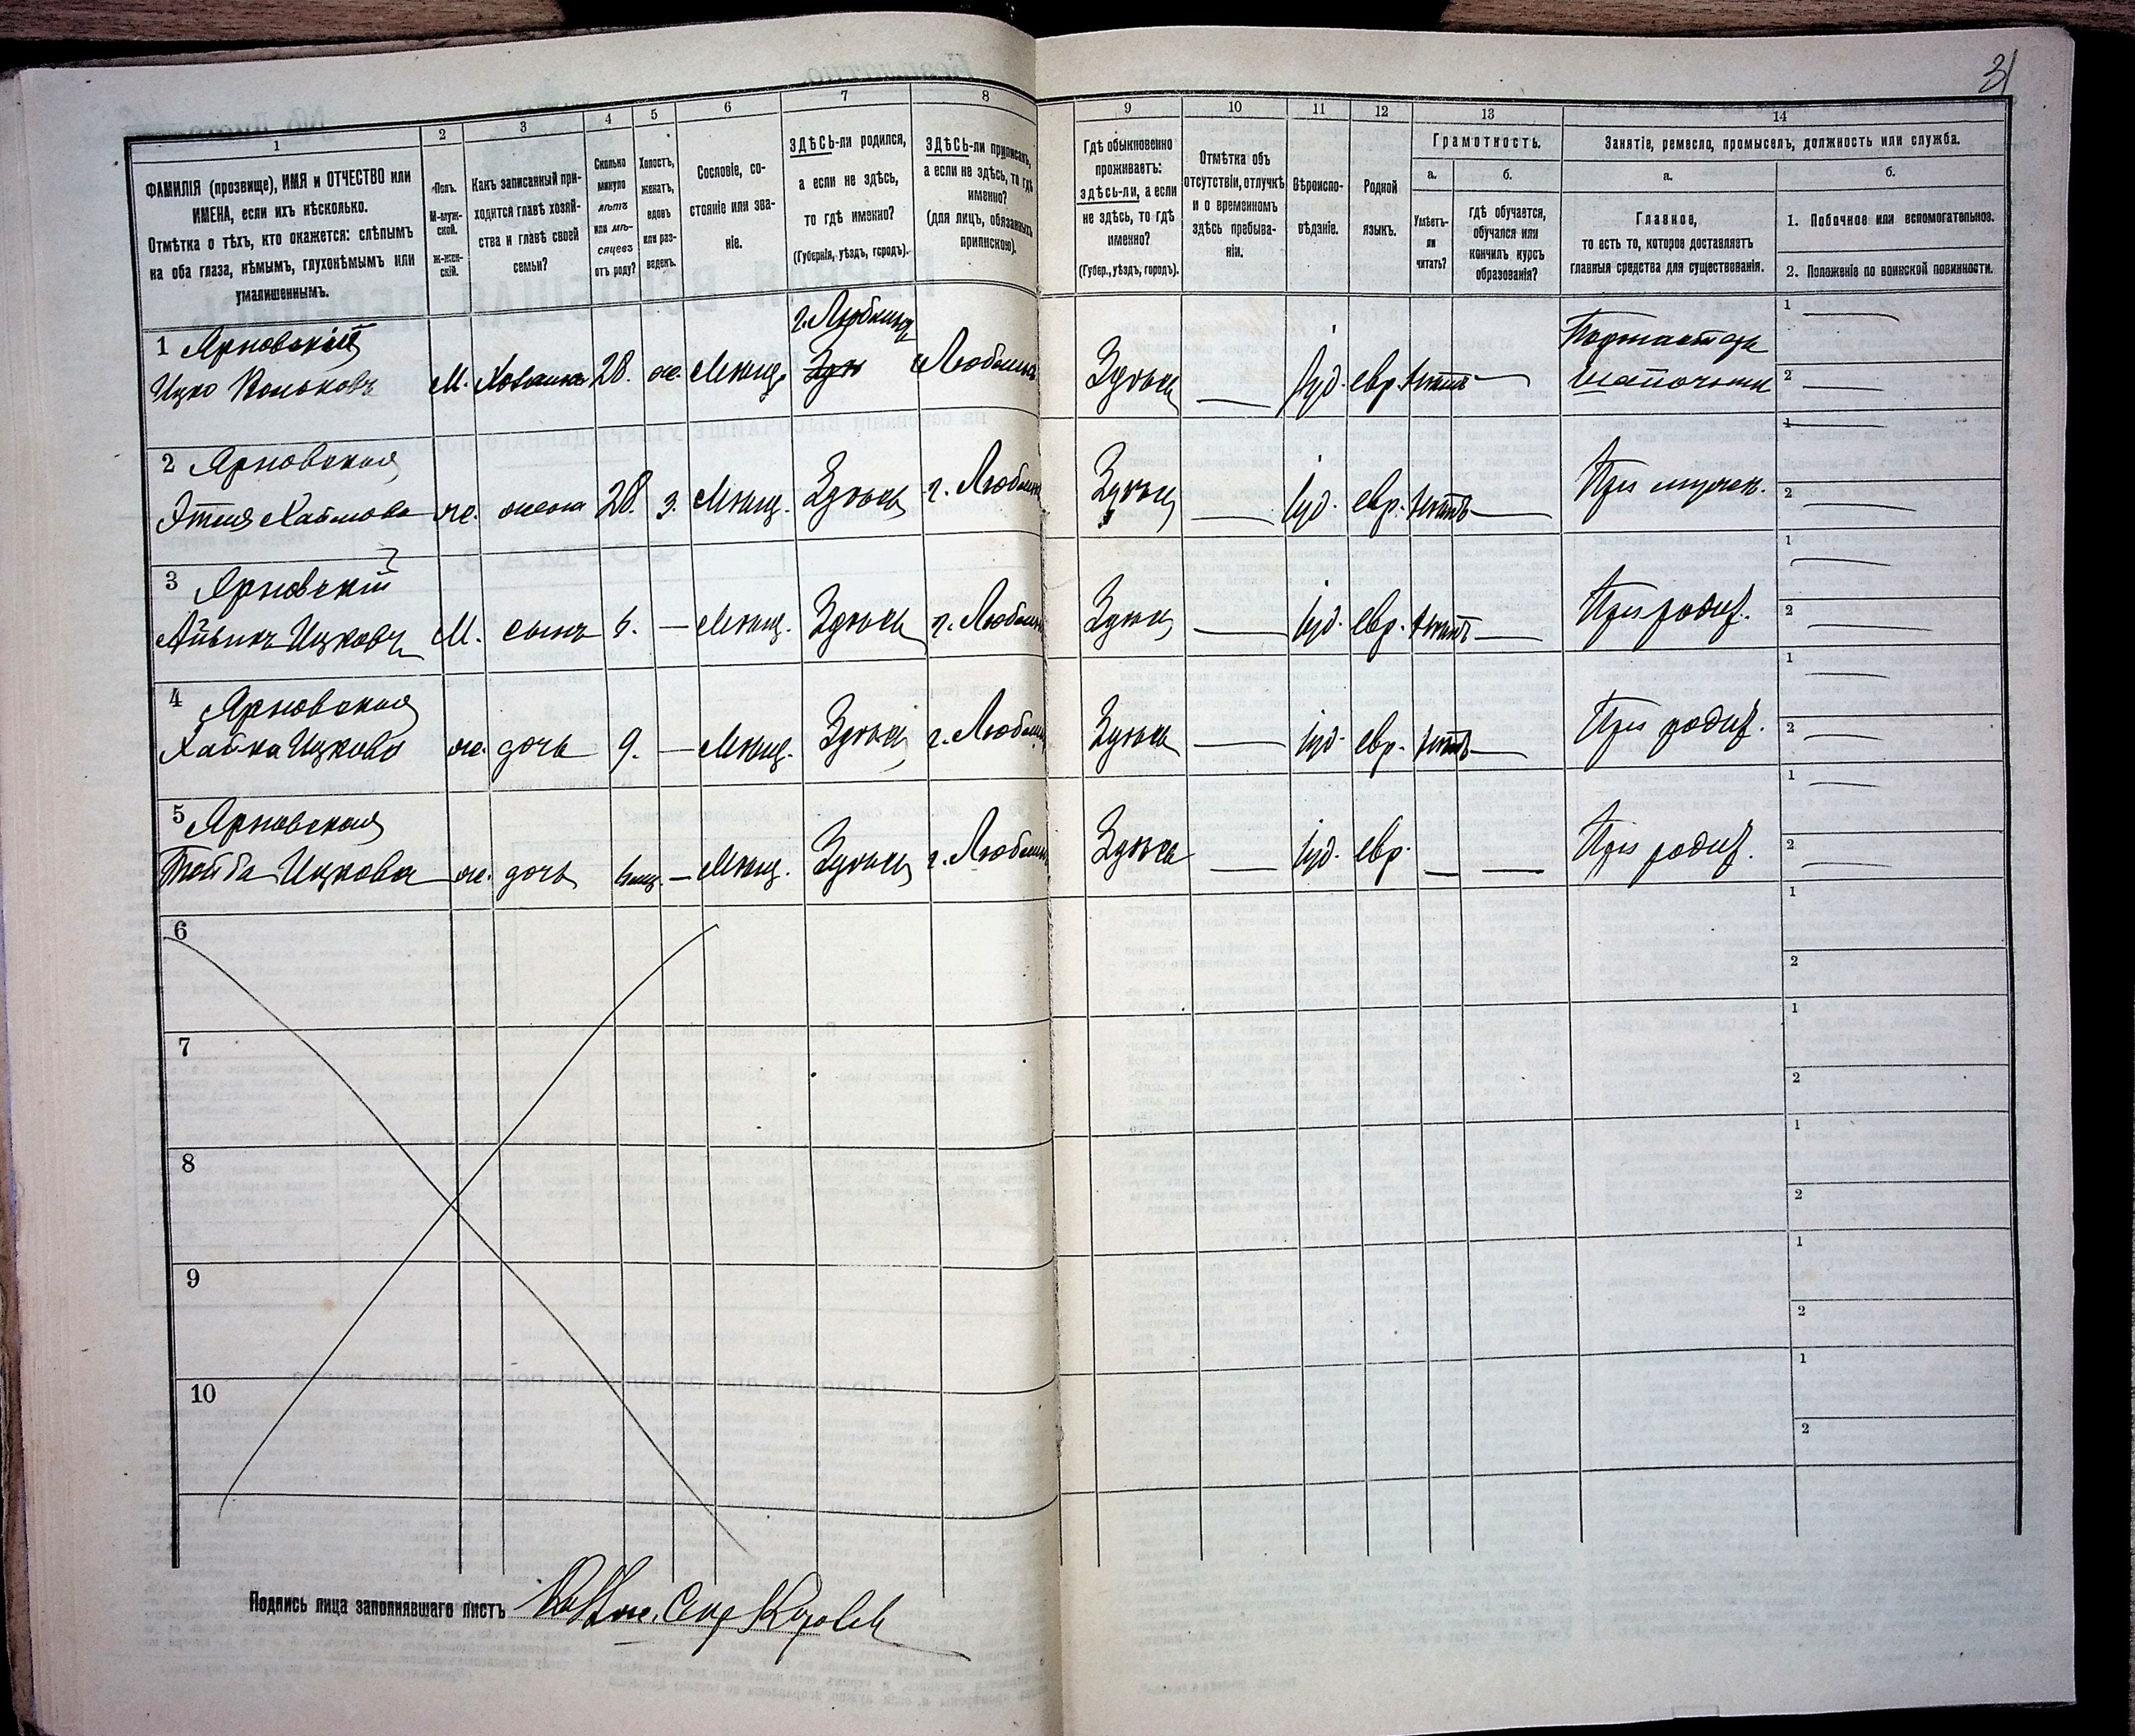 31
1
2
3
4
5
6
7
8
9
10
11
12
13
14
ФАМИЛІЯ (прозвище), ИМЯ и ОТЧЕСТВО или
ИМЕНА, если ихъ нѣсколько.
Отмѣтка о тѣхъ, кто окажется: слѣпымъ
на оба глаза, нѣмымъ, глухонѣмымъ или
умалишеннымъ.
Полъ.
М-муж-
ской.
Ж-жен-
скій.
Какъ записанный при-
ходится главѣ хозяй-
ства и главѣ своей
семьи?
Сколько
минуло
лѣтъ
или мѣ-
сяцевъ
отъ роду?
Холостъ,
женатъ,
вдовъ
или раз-
веденъ.
Сословіе, со-
стояніе или зва-
ніе.
ЗДѢСЬ-ли родился,
а если не здѣсь,
то гдѣ именно?
(Губернія, уѣздъ, городъ).
ЗДѢСЬ-ли приписанъ,
а если не здѣсь, то гдѣ
именно?
(для лицъ, обязанныхъ
припискою).
Гдѣ обыкновенно
проживаетъ:
здѣсь-ли, а если
не здѣсь, то гдѣ
именно?
(Губер., уѣздъ, городъ).
Отмѣтка объ
отсутствіи, отлучкѣ
и о временномъ
здѣсь пребыва-
ніи.
Вѣроиспо-
вѣданіе.
Родной
языкъ.
Грамотность.
а.
Умѣетъ-
ли
читать?
б.
гдѣ обучается,
обучался или
кончилъ курсъ
образованія?
Занятіе, ремесло, промыселъ, должность или служба.
а.
Главное,
то есть то, которое доставляетъ
главныя средства для существованія.
б.
1. Побочное или вспомогательное.
2. Положеніе по воинской повинности.
1 Ярновскій г. Любашъ
Ицко М. Хозяинъ 28. ж. Мѣщ. Здѣсь Здѣсь Іуд. евр. нѣтъ
2 Ярновская
Этля Хаимова ж. жена 28. з. Мѣщ. Здѣсь Здѣсь Іуд. евр. нѣтъ При мужѣ.
3 Ярновскій
Айзикъ Ицковъ М. сынъ — Мѣщ. Здѣсь Здѣсь — Іуд. евр. нѣтъ — При родит.
4 Ярновская
Хайка Ицкова ж. дочь 9. — Мѣщ. Здѣсь Здѣсь — Іуд. евр. нѣтъ — При родит.
5 Ярновская
Тойба Ицкова ж. дочь — Мѣщ. Здѣсь Здѣсь — Іуд. евр. — — При родит.
6
7
8
9
10
1
2
1
2
1
2
1
2
1
2
1
2
1
2
1
2
1
2
1
2
Подпись лица заполнявшаго листъ